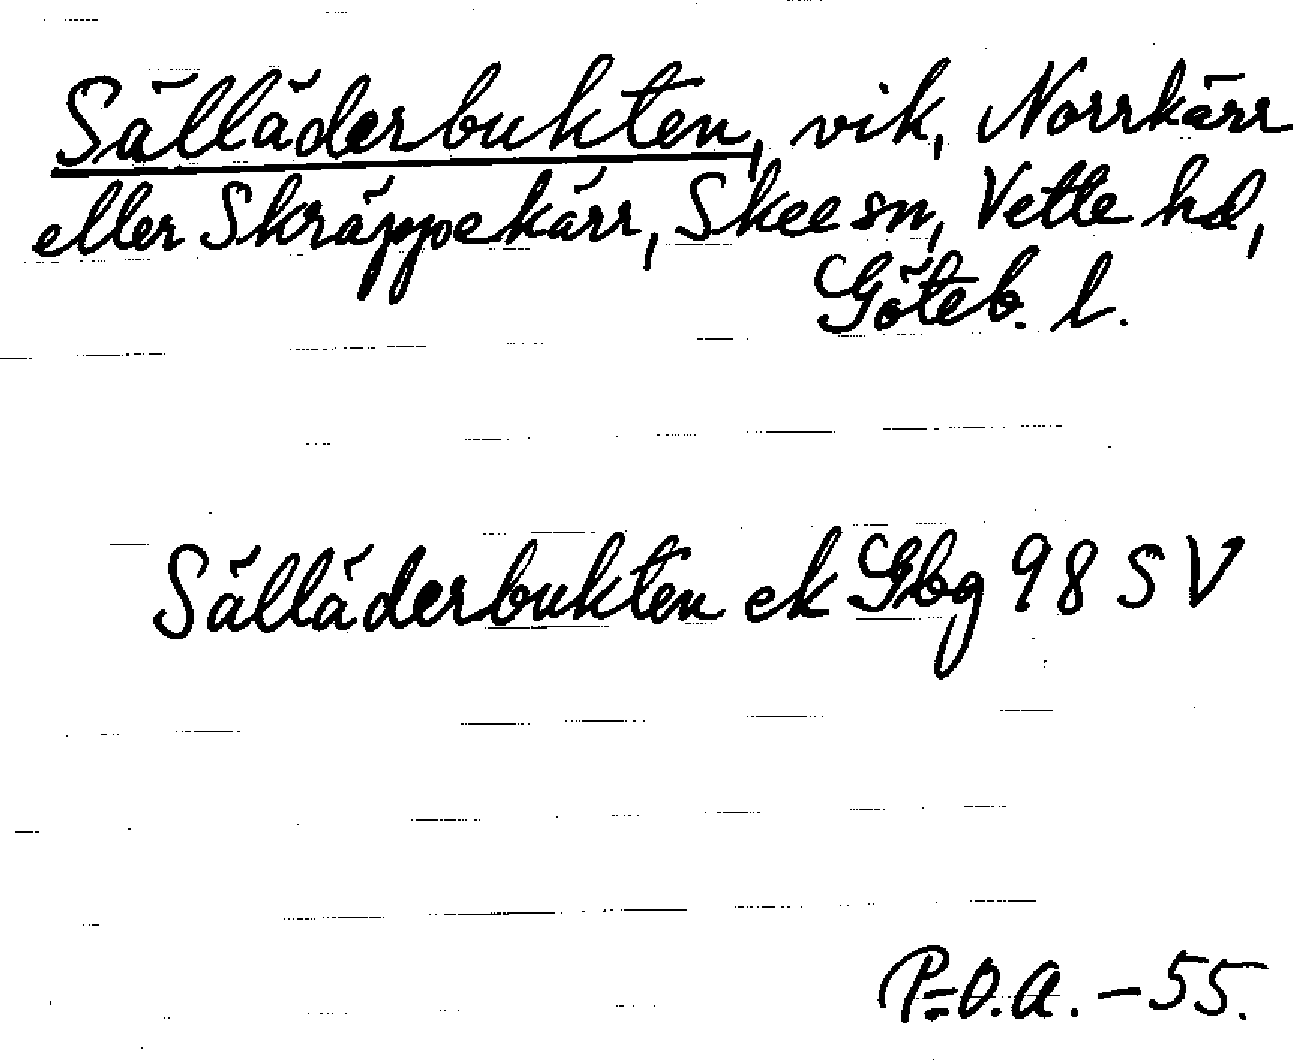 Sälläderbukten, vik, Norrkärr
eller Skräppekärr, Skee sn, Vette hd,
Göteb. l.
Sälläderbukten ek Gbg 98 SV
P-O.A. -55.